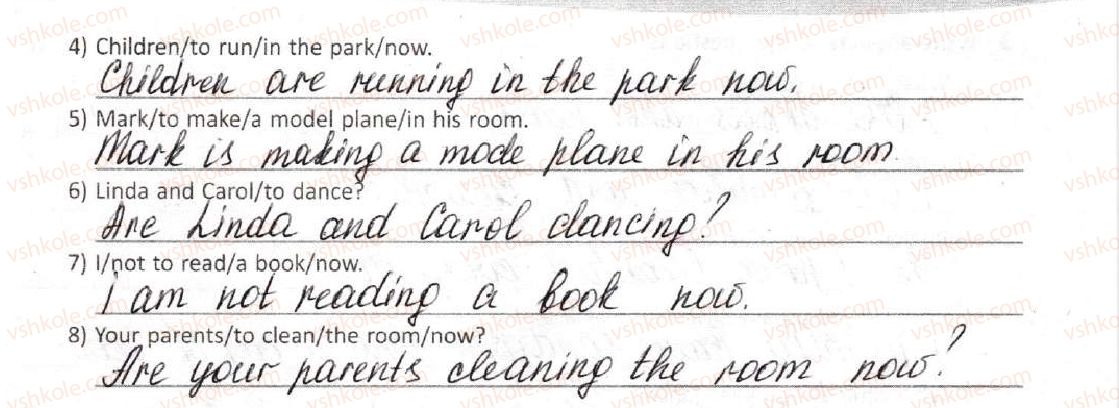 4) Children/to run/in the park/now.
Children are running in the park now.
5) Mark/to make/a model plane/in his room.
Mark is making a mode plane in his room.
6) Linda and Carol/to dance?
Are Linda and Carol dancing?
7) I/not to read/a book/now.
I am not reading a book now.
8) Your parents/to clean/the room/now?
Are your parents cleaning the room now?